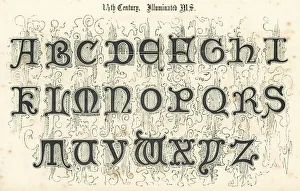 14th Century. Illuminated M.S.
ABCDEFGHI
KLMNOPQRS
TUVWXYZ